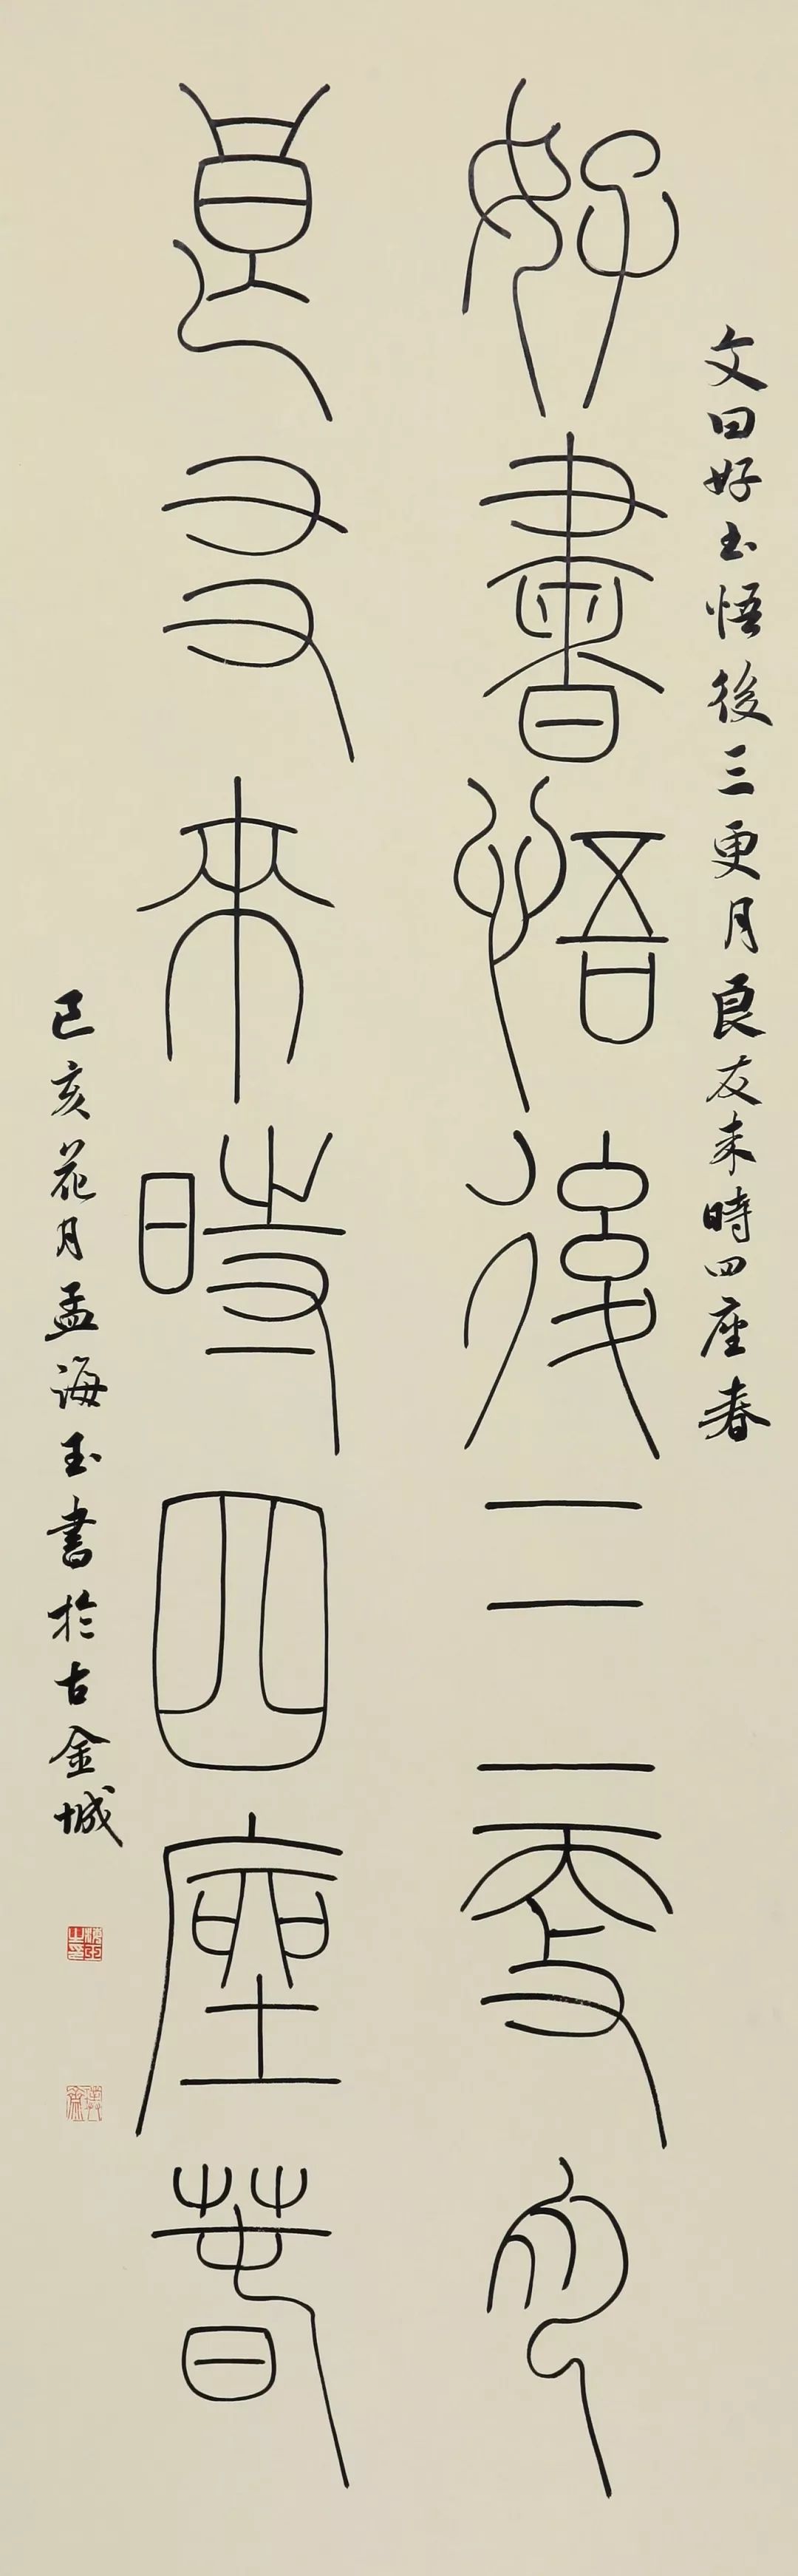 文曰好书悟後三更月良友来時四座春
好書悟後三更月
良友來時四座春
己亥花月孟海玉書於古金城